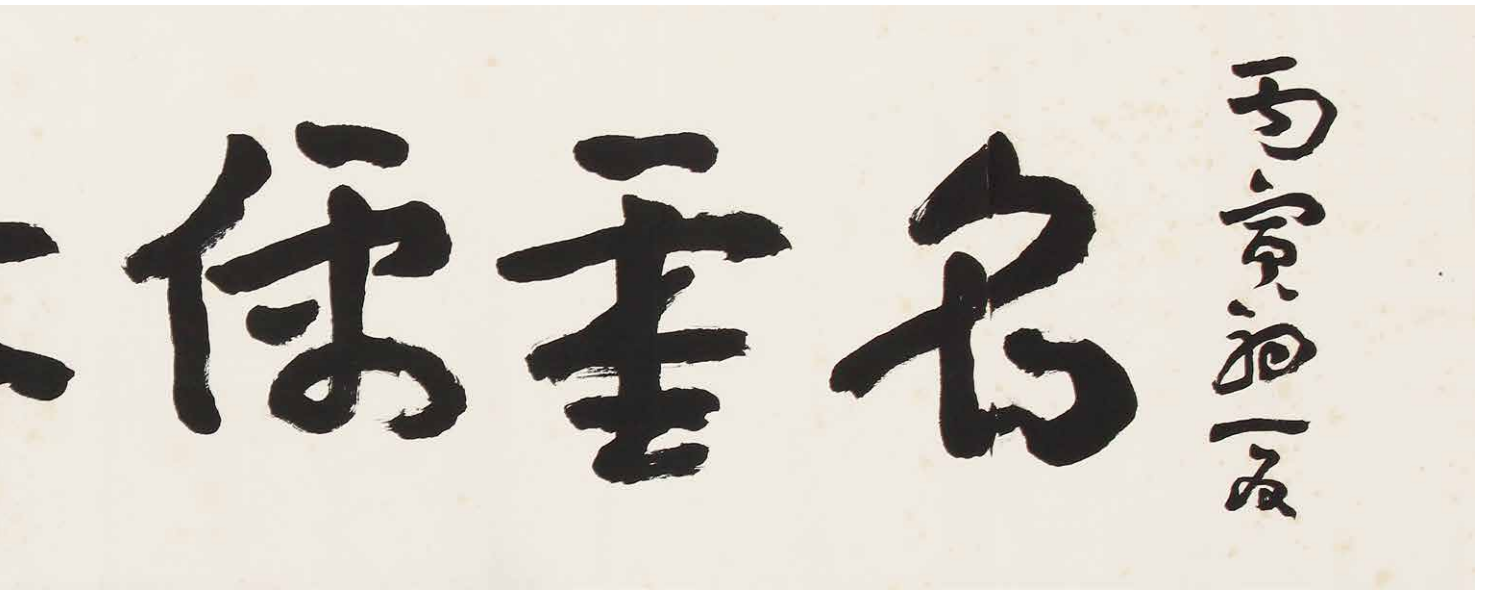 丙寅初夏
名重儒